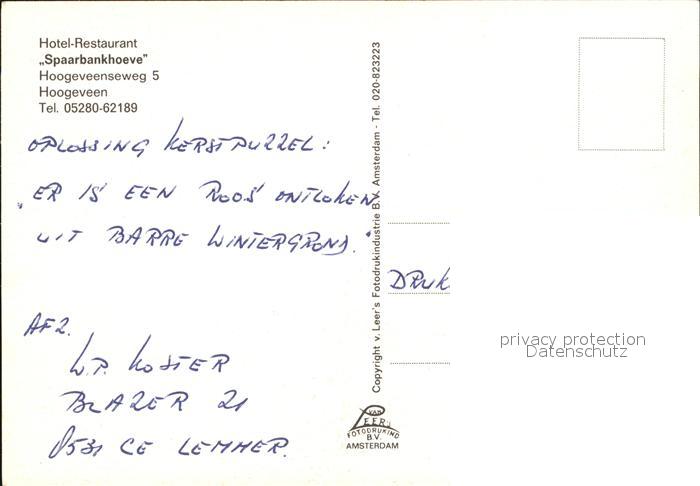 Hotel-Restaurant
„Spaarbankhoeve”
Hoogeveenseweg 5
Hoogeveen
Tel. 05280-62189
OPLOSSING KERSTPUZZEL:
„ER IS EEN ROOS ONTLOKEN
UIT BARRE WINTERGROND."
AFZ.
W.P. KOSTER
BLAZER 21
8531 CE LEMMER.
Copyright v. Leer's Fotodrukindustrie B.V. Amsterdam - Tel. 020-823223
DRUK
privacy protection
Datenschutz
VAN
LEER'S
FOTODRUKIND
B.V.
AMSTERDAM